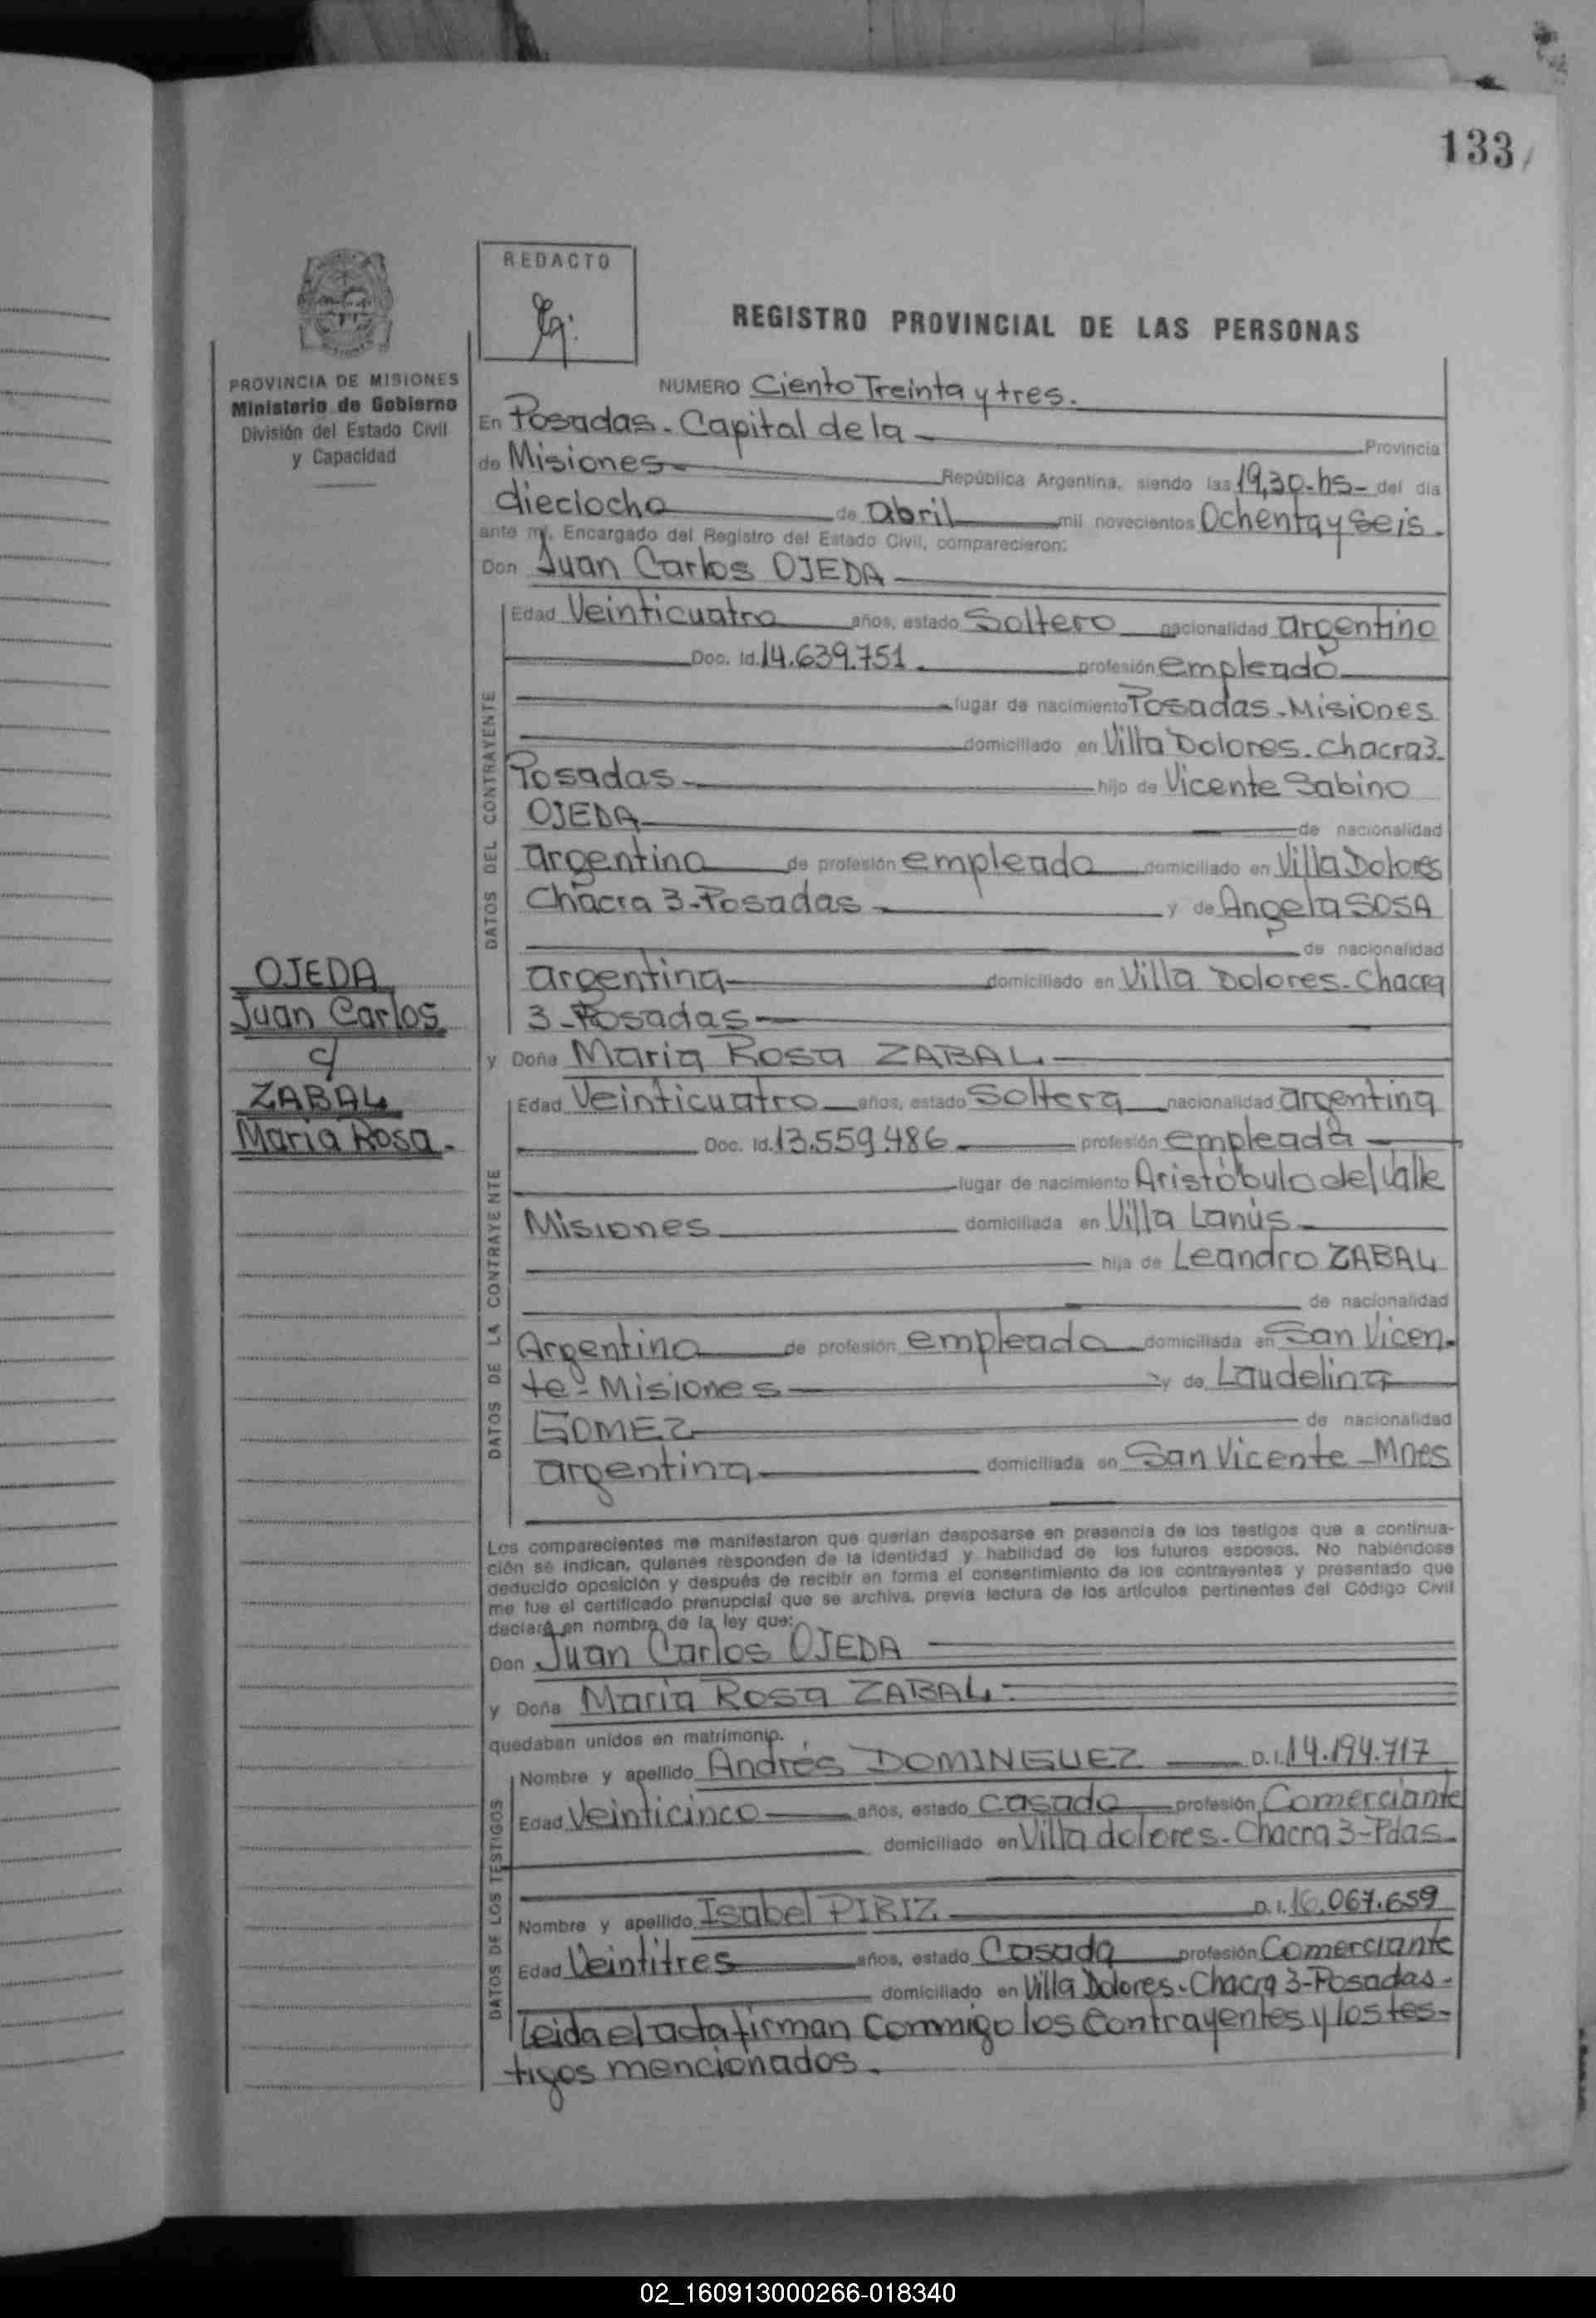 133
REDACTO
REGISTRO PROVINCIAL DE LAS PERSONAS
PROVINCIA DE MISIONES
Ministerio de Gobierno
División del Estado Civil
y Capacidad
NUMERO Ciento Treinta y tres.
En Posadas - Capital de la Provincia
de Misiones República Argentina, siendo las 19,30-hs- del día
dieciocho de abril mil novecientos Ochenta y seis.
ante mí, Encargado del Registro del Estado Civil, comparecieron:
Don Juan Carlos OJEDA
DATOS DEL CONTRAYENTE
Edad Veinticuatro años, estado Soltero nacionalidad argentino
Doc. Id. 14.639.751. profesión empleado
lugar de nacimiento Posadas - Misiones
domiciliado en Villa Dolores. Chacra 3.
Posadas hijo de Vicente Sabino
OJEDA de nacionalidad
argentino de profesión empleado domiciliado en Villa Dolores
Chacra 3-Posadas y de Angela SOSA
de nacionalidad
argentina domiciliado en Villa Dolores - Chacra
3-Posadas
OJEDA
Juan Carlos
c/
ZABAL
Maria Rosa.
y Doña Maria Rosa ZABAL
DATOS DE LA CONTRAYENTE
Edad Veinticuatro años, estado Soltera nacionalidad argentina
Doc. Id. 13.559.486 profesión empleada
lugar de nacimiento Aristóbulo del Valle
Misiones domiciliada en Villa Lanús
hija de Leandro ZABAL
de nacionalidad
Argentino de profesión empleado domiciliada en San Vicen-
te - Misiones y de Laudelina
GOMEZ de nacionalidad
argentina domiciliada en San Vicente - Mnes
Los comparecientes me manifestaron que querían desposarse en presencia de los testigos que a continua-
ción se indican, quienes responden de la identidad y habilidad de los futuros esposos. No habiéndose
deducido oposición y después de recibir en forma el consentimiento de los contrayentes y presentado que
me fue el certificado prenupcial que se archiva, previa lectura de los artículos pertinentes del Código Civil
declaré en nombre de la ley que:
Don Juan Carlos OJEDA
y Doña María Rosa ZABAL
quedaban unidos en matrimonio.
DATOS DE LOS TESTIGOS
Nombre y apellido Andrés DOMINGUEZ D.I. 14.194.717
Edad Veinticinco años, estado casado profesión Comerciante
domiciliado en Villa dolores - Chacra 3-Pdas.
Nombre y apellido Isabel PIRIZ D.I. 16.067.659
Edad Veintitres años, estado Casada profesión Comerciante
domiciliado en Villa Dolores - Chacra 3-Posadas-
Leida el acta firman Commigo los Contrayentes y los tes-
tigos mencionados.
02_160913000266-018340